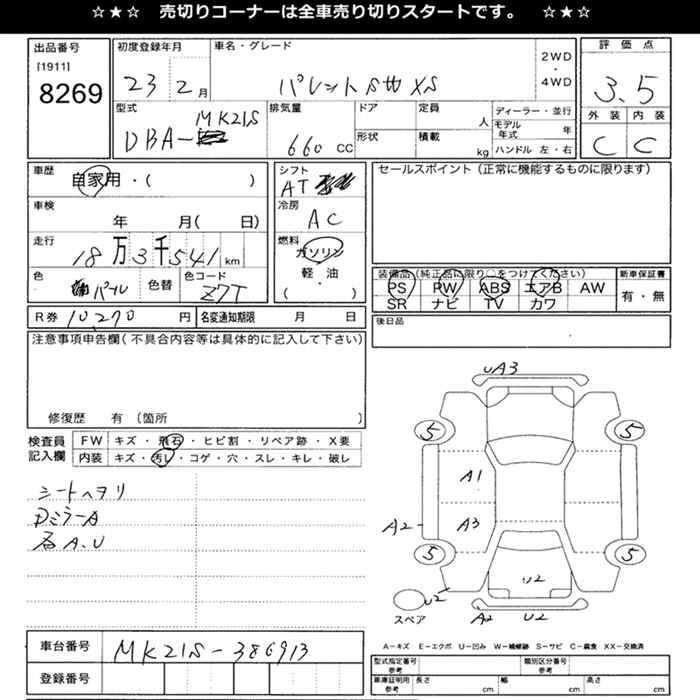 ☆★☆ 売切りコーナーは全車売り切りスタートです。 ☆★☆
出品番号
[1911]
8269
初度登録年月
23 2月
車名・グレード
パレットSW XS
2WD
・
4WD
評価点
3.5
外装 内装
C C
型式
MK21S
DBA-
排気量
660 CC
ドア
形状
定員
人
積載
kg
ディーラー・並行
モデル年式 年
ハンドル 左・右
車歴
自家用・( )
車検
年 月( 日)
走行
18万3千541km
色
パール
色替
色コード
Z7T
シフト
AT
冷房
AC
燃料
ガソリン
軽・油
( )
セールスポイント(正常に機能するものに限ります)
装備品(純正品に限り○をつけてください)
PS PW ABS エアB AW
SR ナビ TV カワ
新車保証書
有・無
R券 10,270 円
名変通知期限 月 日
後日品
注意事項申告欄(不具合内容等は具体的に記入して下さい)
修復歴 有 (箇所 )
検査員
記入欄
FW キズ・飛石・ヒビ割・リペア跡・X要
内装 キズ・汚レ・コゲ・穴・スレ・キレ・破レ
シートヘタリ
DミラーA
各A.U
UA3
5 5
A1
A2 A3
5 5
U2
U2
スペア
A2 U2
A-キズ E-エクボ U-凹み W-補修跡 S-サビ C-腐食 XX-交換済
車台番号 MK21S-386913
登録番号
型式指定番号
参考
類別区分番号
参考
車庫証明用
参考
長さ cm
幅 cm
高さ cm